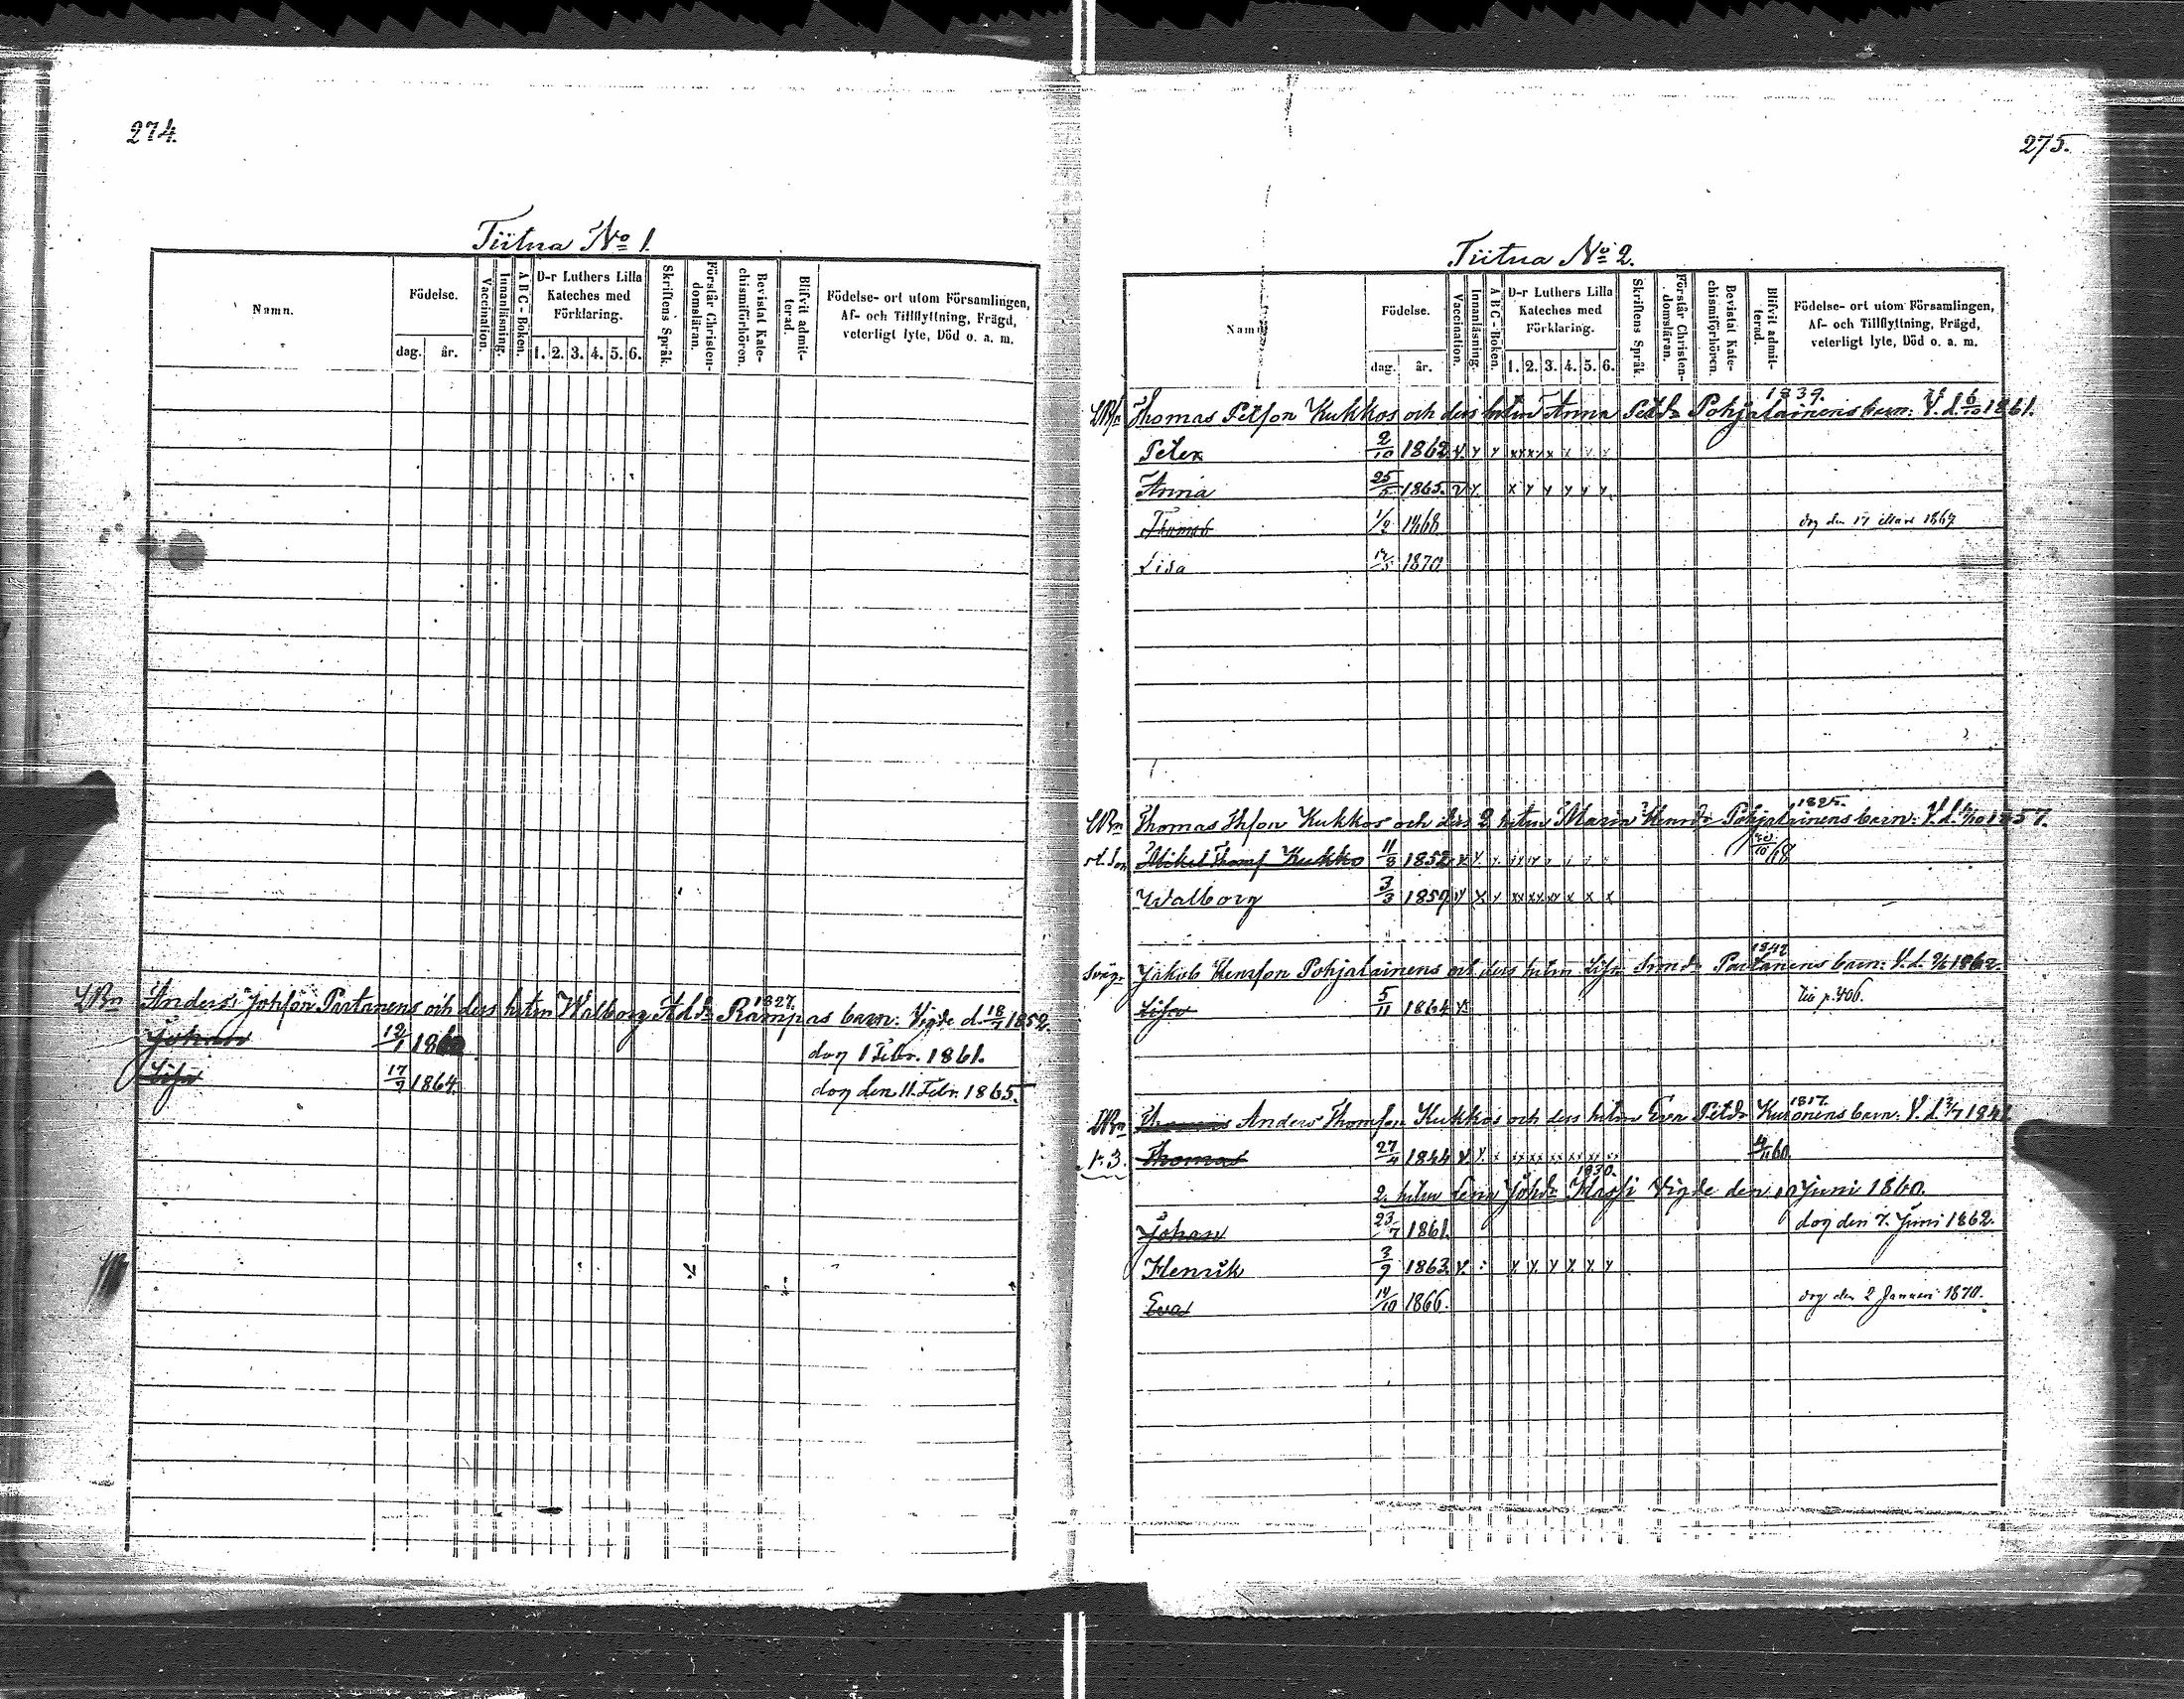 274.
Tiitua No 1.
Namn.
Födelse.
dag.
år.
Vaccination.
Innanläsning.
A B C - Boken.
D-r Luthers Lilla
Kateches med
Förklaring.
1. 2. 3. 4. 5. 6.
Skriftens Språk.
Förstår Christen-
domsläran.
Bevistat Kate-
chismiförhören.
Blifvit admit-
terad.
Födelse- ort utom Församlingen,
Af- och Tillflyttning, Frägd,
veterligt lyte, Död o. a. m.
1827.
Anders Johson Partanens och dess hstru Walborg Rampas barn. Vigde d. 18/7 1852.
Johan 12/1 dog 1 Febr. 1861.
Lisa 17/9 1864. dog den 11. Febr. 1865.
275.
Tiitua No 2.
Namn
Födelse.
dag.
år.
Vaccination.
Innanläsning.
A B C - Boken.
D-r Luthers Lilla
Kateches med
Förklaring.
1. 2. 3. 4. 5. 6.
Skriftens Språk.
Förstår Christen-
domsläran.
Bevistat Kate-
chismiförhören.
Blifvit admit-
terad.
Födelse- ort utom Församlingen,
Af- och Tillflyttning, Frägd,
veterligt lyte, Död o. a. m.
1839.
Thomas Petson Kukkos och dess hstru Anna Petdr Pohjalainens barn. V. d. 6/10 1861.
Peter 2/10 1862 v x x xx xx x x x x
Anna 25/5 1865. v x x x x x x x
Thomas 1/2 1868 dog den 17 Mars 1869
Lisa 1870
1825.
Thomas Thson Kukkos och dess 2 hstru Maria Henrdr Pohjalainens barn. V. d. 1857.
Mikel Thomss Kukko 11/8 1852
Walborg 3/3 1859 v x x xx xx xx x x x
1842
Jakob Henrson Pohjalainens och dess hstru Lisa Simdr Partanens barn. V. d. 1862.
Lisa 5/11 1864 v. p. 406.
1817.
Anders Thomson Kukkos och dess hstru Eva Petdr Kuronens barn. V. d. 3/7 1841
Thomas 27/4 1844 v. x x xx xx xx xx xx xx 60.
1830.
2. hstru Lena Johdr Vigde den 10 Juni 1860.
Johan 23/7 1861. dog den 7. Juni 1862.
Henrik 3/9 1863 v. x x x x x x
Eva 14/10 1866. dog den 2 Januari 1870.